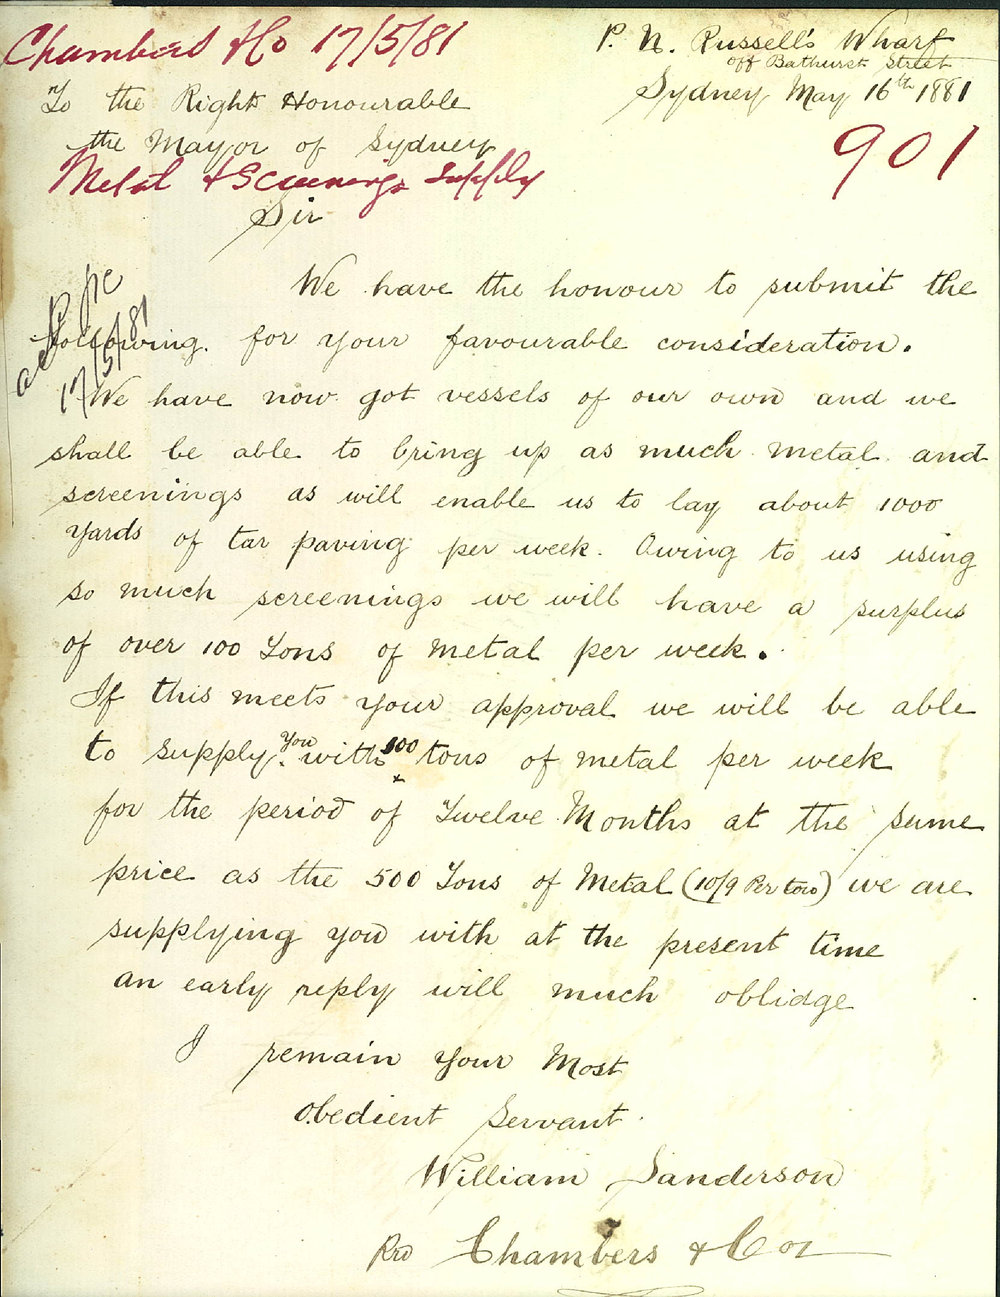 Chambers & Co 17/5/81
P. N. Russell's Wharf
off Bathurst Street
Sydney May 16th 1881
901
To the Right Honourable
the Mayor of Sydney
Metal & Screenings Supply
Sir
We have the honour to submit the
following. for your favourable consideration.
17/5/81
We have now got vessels of our own and we
shall be able to bring up as much metal and
screenings as will enable us to lay about 1000
yards of tar paving per week. Owing to us using
so much screenings we will have a surplus
of over 100 Tons of metal per week.
If this meets your approval we will be able
to supply you with 100 tons of metal per week
for the period of Twelve Months at the same
price as the 500 Tons of Metal (10/9 Per ton) we are
supplying you with at the present time
an early reply will much oblidge
I remain your Most
obedient Servant.
William Sanderson
Pro Chambers & Co